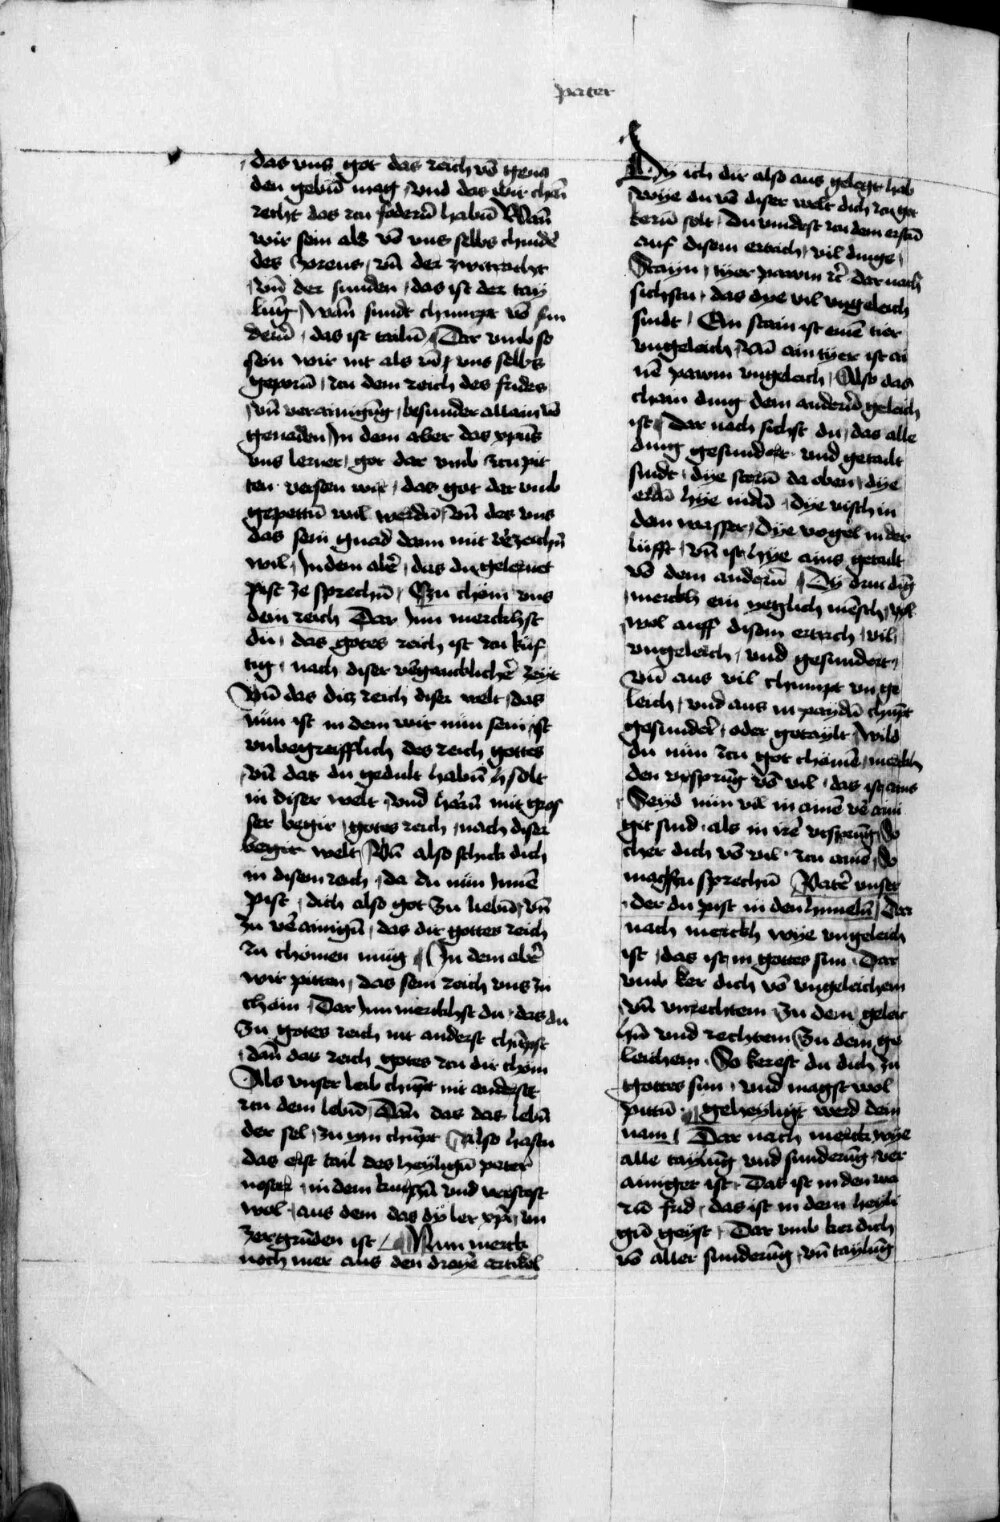 pater
das vns got das reich vō gena
den gebñ mag / vnd das wir chain
recht das zu foderñ habñ Wañ
wir sein als vō vns selbs chinder̄
des zorens / vñ der zwitrācht
vñ der sunden / das ist der tay
lūg / wañ sundt chumpt vō sun
derñ / das ist tailñ Dar vmb so
sein wir nit als vō vns selbs
geporñ / zu dem reich des frides
vñ verainigūg / besunder allain vō
genaden Jn dem aber das xp̄us
vns lernet / got dar vmb zcu pit
ten versten wir / das got dar vmb
gepettñ wil werdñ / vñ des vns
das sein gnad dann mit v̄zeichñ
wil / Jn dem ab̄er / das du gelernet
pist ze sprechñ / Czu chom vns
dein reich Dar Jnn merckhst
du / das gotes reich ist zu kūf
tig / nach diser v̄gancklicher̄ zeyt
Vñ das diz reich diser welt / das
nün ist in dem wir nün sein / ist
vnbegreifflich des reich gottes
vñ das du gedult habñ solt
in diser welt / vnd harñ mit gros
ser begir / gotes reich / nach diser
welt / Vñ also schick dich
in disem reich / da du nün Jnnē
pist / dich also got zu liebñ / vñ
zu v̄ainigñ / das dir gottes reich
zu chömen müg Jn dem ab̄er
wir pitten / das sein reich vns zu
chom / Dar Jnn merckhst du / das du
zu gotes reich nit anderst chūpst
dañ das reich gotes zu dir chom
Als vnser leib chūpt nit anderst
zu dem lebñ / Dañ das das lebñ
der sel / zu ym chūpt / Also hastu
das erst tail des heyligñ pater
noster / in dem kurczñ vnd verstest
wol / aus dem das dy ler xp̄i / vn
zergrūden ist / Nun merck
noch mer aus den dreyē artikel
Dy ich dir also aus gelegt hab
wye du vō diser welt dich zu got
kerñ solt / Du vindest zu dem erstñ
auf disem ertrich / vil dinge /
Stayn / tyer pawm ēt dar nach
sichstu / das dye vil vngeleich
sindt / Ein stain ist einē tier
vngeleich / Vñ ain tyer ist ai
nē pawm vngeleich / Also das
chain ding dem anderñ geleich
ist / Dar nach sichst du / das alle
ding gesundert vnd getailt
sindt / dye sterñ da oben / dye
erdñ hye nidñ / dye visch in
dem wasser / Dye vogel in der
lüfft / vñ ist hye ains getailt
vō dem anderñ / Dy drey dīg
merckh ein yetzlich mēsch / wol
wol auff disem ertrich / vil
vngeleich / vnd gesundert /
Vñ aus vil chumpt vn ge
leich / vnd aus in paydñ chūpt
gesundert / oder getaylt / Wild
du nün zcu got chömē / merckh
den vrsprūg vō vil / das ist ains
Seyd nün vil in ainē v̄aini
git sind / als in irē vrsprūg / So
cher dich vō vil zcu ainē / So
magstu sprechñ Pater̄ vnser
der du pist in den himelñ / Dar
nach merckh wye vngeleich
ist / das ist in gottes sun / Dar
vmb ker dich vō vngeleichem
vñ vnrechtem zu dem geleic
hñ vnd rechtem / Zu dem ge
leichem / So kerest du dich zu
gottes sun / vnd magst wol
pittñ / geheyligt werd dein
nam / Dar nach merck wye
alle taylūg vnd sunderūg ver
ainiget ist / Das ist in den wa
rñ frid / das ist in dem heyli
gñ geyst / Dar vmb ker dich
vō aller sunderūg / vñ taylūg